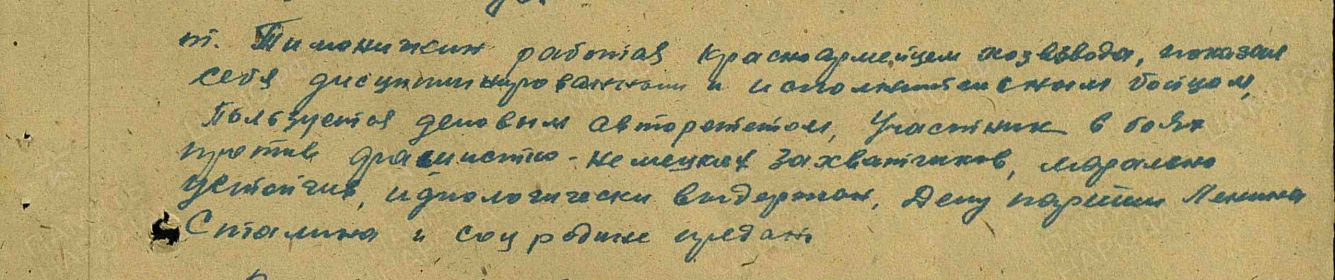 т. Тимоничкин работая красноармейцем хозвзвода, показал
себя дисциплинированным и исполнительным бойцом,
Пользуется деловым авторететом, Участник в боях
против фашистко-немецких захватчиков, морально
устойчив, идиологически выдержан, Делу партии Ленина
Сталина и соц родине предан